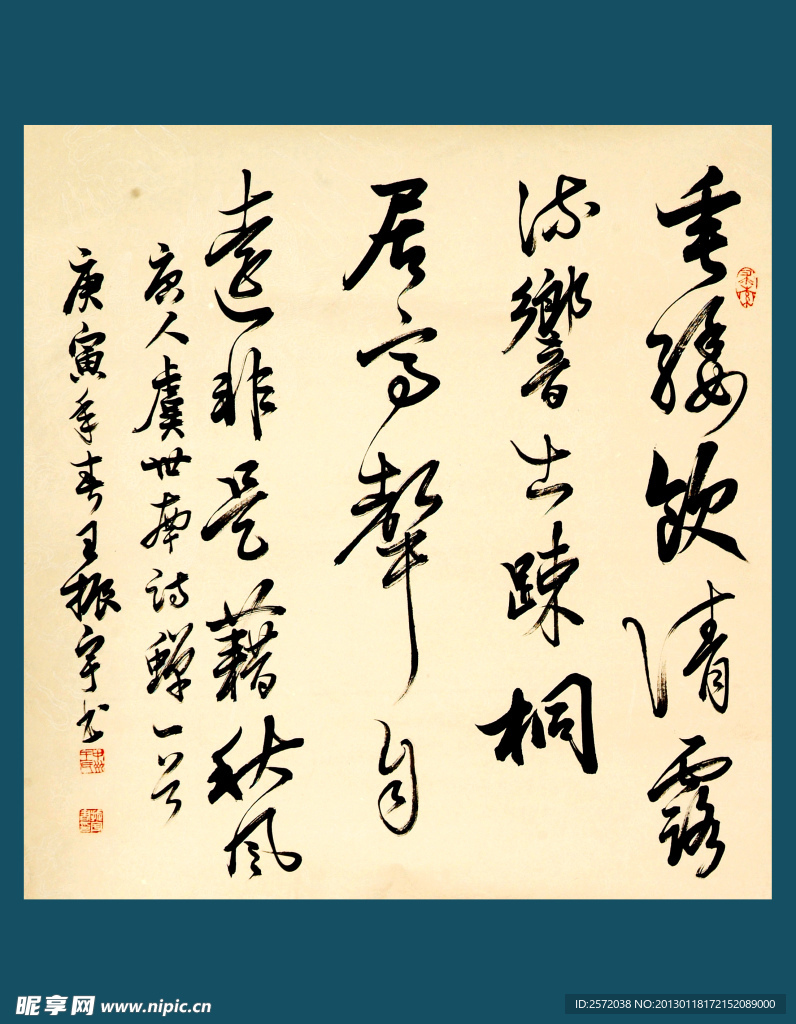 垂緌飲清露
流響出疎桐
居高聲自
遠非是藉秋風
唐人虞世南詩蟬一首
庚寅年春王振宇书
昵享网 www.nipic.cn
ID:2572038 NO:20130118172152089000